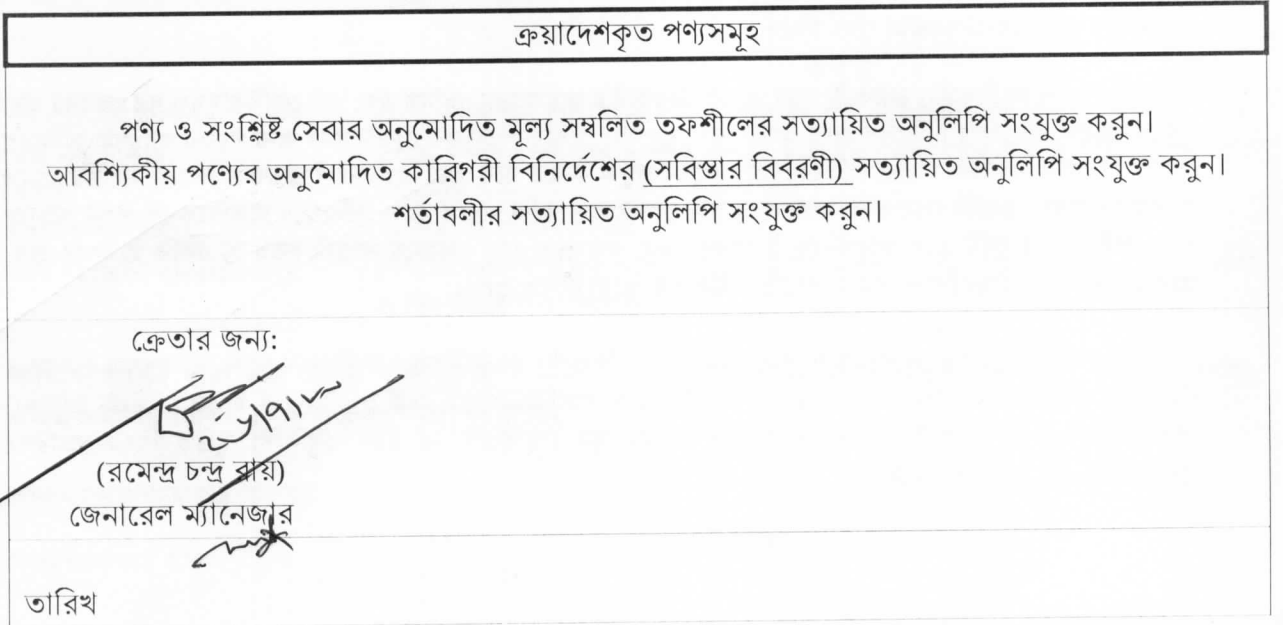 ক্রয়াদেশকৃত পণ্যসমূহ
পণ্য ও সংশ্লিষ্ট সেবার অনুমোদিত মূল্য সম্বলিত তফশীলের সত্যায়িত অনুলিপি সংযুক্ত করুন।
আবশ্যিকীয় পণ্যের অনুমোদিত কারিগরী বিনির্দেশের (সবিস্তার বিবরণী) সত্যায়িত অনুলিপি সংযুক্ত করুন।
শর্তাবলীর সত্যায়িত অনুলিপি সংযুক্ত করুন।
ক্রেতার জন্য:
(রমেন্দ্র চন্দ্র রায়)
জেনারেল ম্যানেজার
তারিখ